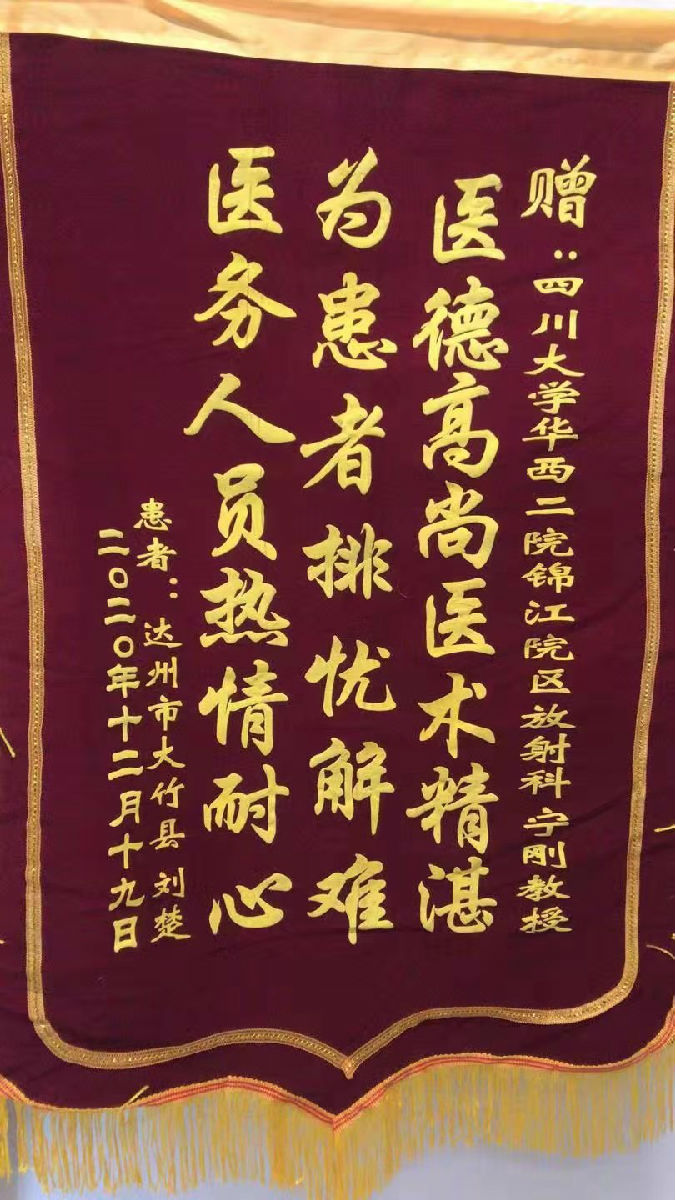 赠：四川大学华西二院锦江院区放射科宁刚教授
医德高尚医术精湛
为患者排忧解难
医务人员热情耐心
患者：达州市大竹县 刘楚
二〇二〇年十二月十九日